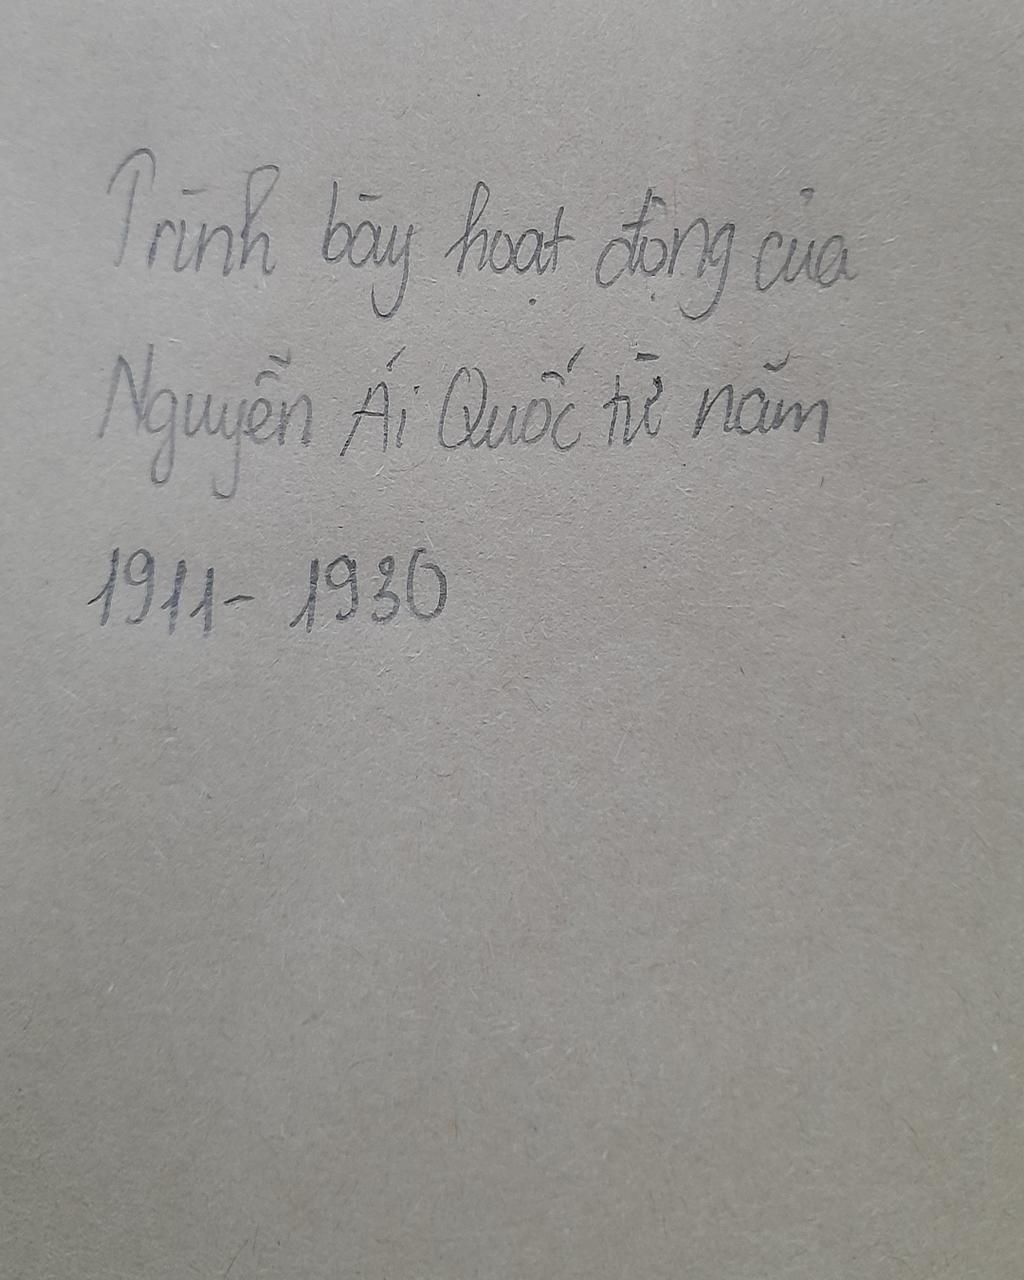 Trình bày hoạt động của
Nguyễn Ái Quốc từ năm
1911- 1930